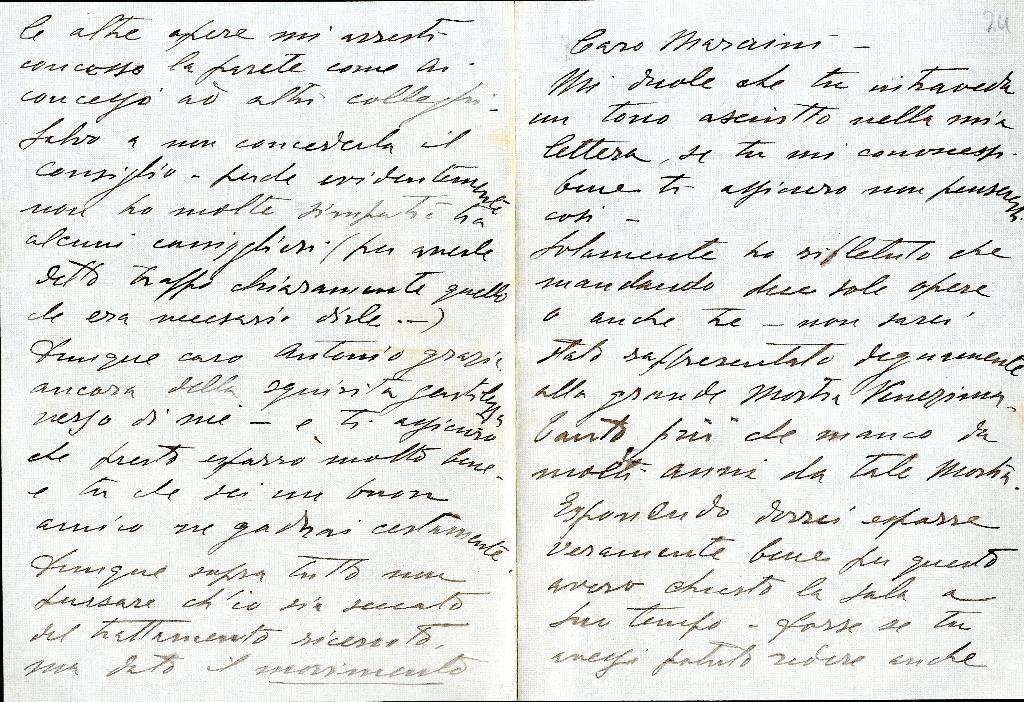 24
Caro Maraini –
Mi duole che tu intraveda
un tono asciutto nella mia
lettera, se tu mi conoscessi
bene ti assicuro non penseresti
così –
Solamente ho rifletuto che
mandando due sole opere
o anche tre – non sarei
stato rappresentato degnamente
alla grande Mostra Veneziana.
Tanto più che manco da
molti anni da tale Mostra.
Esponendo dovrei esporre
veramente bene per questo
avevo chiesto la sala a
suo tempo – forse se tu
avessi potuto vedere anche
le altre opere mi avresti
concesso la parete come hai
concesso ad altri colleghi –
Salvo a non concederla il
Consiglio – perchè evidentemente
non ho molte simpatie tra
alcuni consiglieri (per avere
detto troppo chiaramente quello
che era necessario dirle . –)
Dunque caro Antonio grazie
ancora della squisita gentilezza
verso di me – e ti assicuro
che presto esporrò molto bene –
e tu che sei un buon
amico ne godrai certamente.
Dunque sopra tutto non
pensare ch'io sia seccato
del trattamento ricevuto.
ma dato il movimento